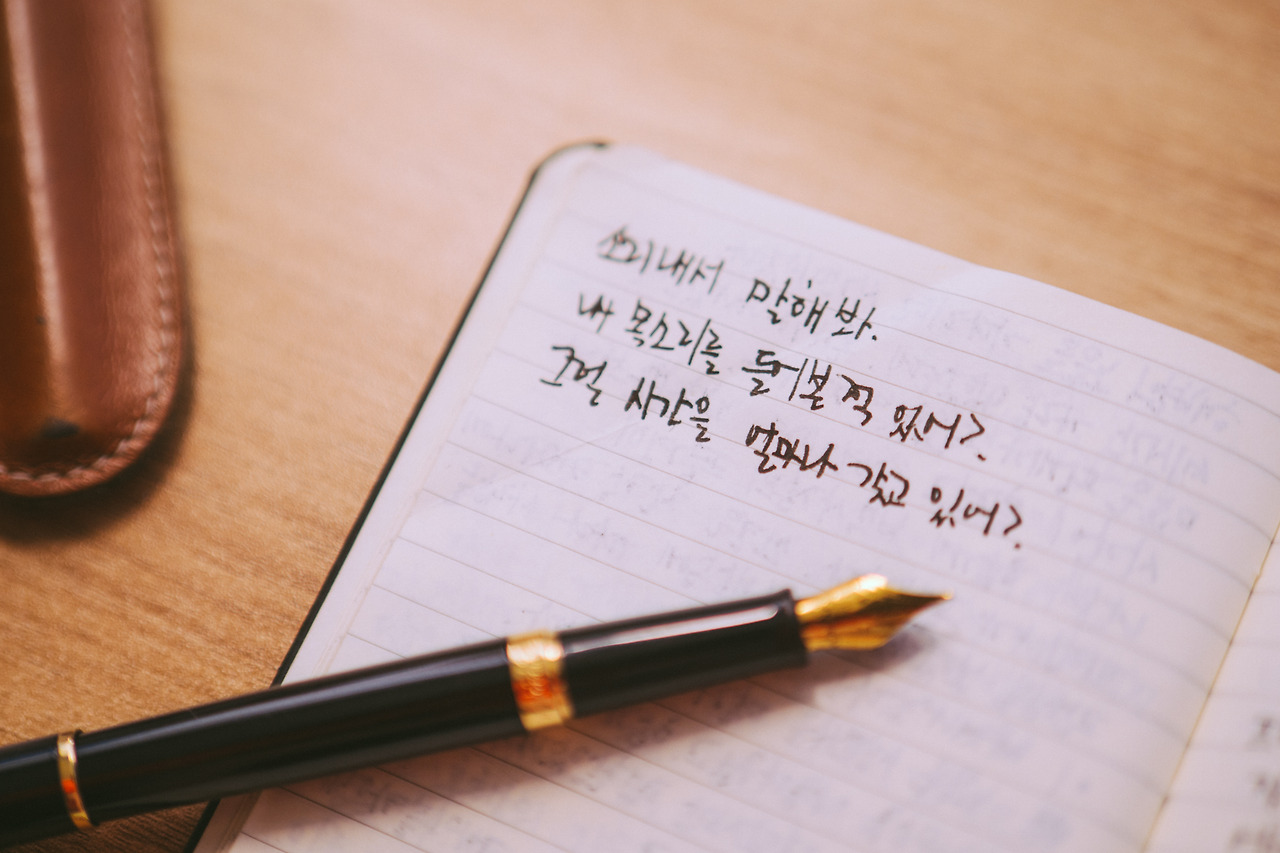 소리내서 말해봐.
내 목소리를 들어본 적 있어?
그럴 시간을 얼마나 갖고 있어?